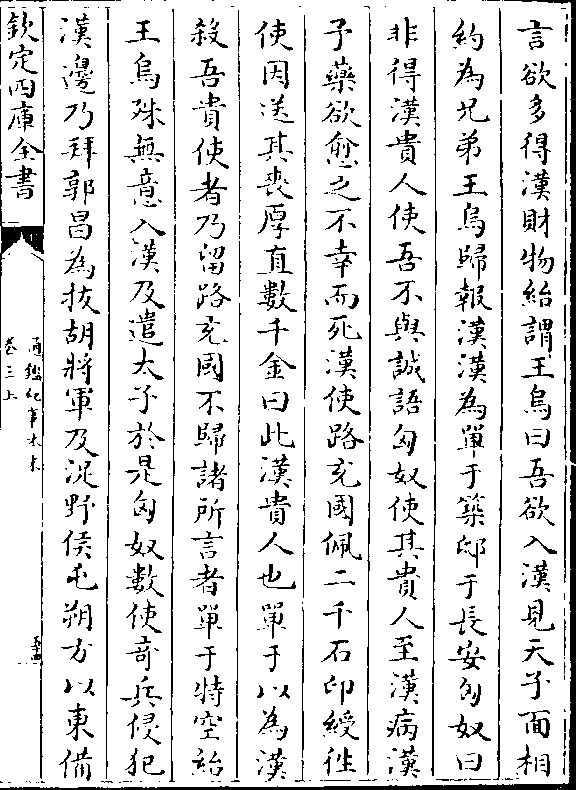 言欲多得漢財物紿謂王烏曰吾欲入漢見天子面相
約為兄弟王烏歸報漢漢為單于築邸于長安匈奴曰
非得漢貴人使吾不與誠語匈奴使其貴人至漢病漢
予藥欲愈之不幸而死漢使路充國佩二千石印綬徃
使因送其喪厚直數千金曰此漢貴人也單于以為漢
殺吾貴使者乃留路充國不歸諸所言者單于特空紿
王烏殊無意入漢及遣太子於是匈奴數使竒兵侵犯
漢邊乃拜郭昌為拔胡將軍及浞野侯屯朔方以東備
欽定四庫全書
通鑑紀事本末
卷三上